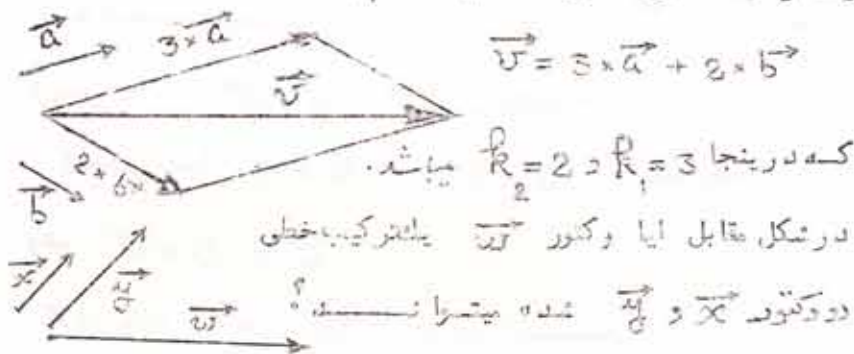 a⃗
3×a⃗
v⃗
v⃗ = 3×a⃗ + 2×b⃗
2×b⃗
که درینجا k₁=3 و k₂=2 میباشد.
b⃗
در شکل مقابل ایا وکتور w⃗ یکترکیب خطی
x⃗
y⃗
w⃗
دو وکتور x⃗ و y⃗ شده میتواند؟